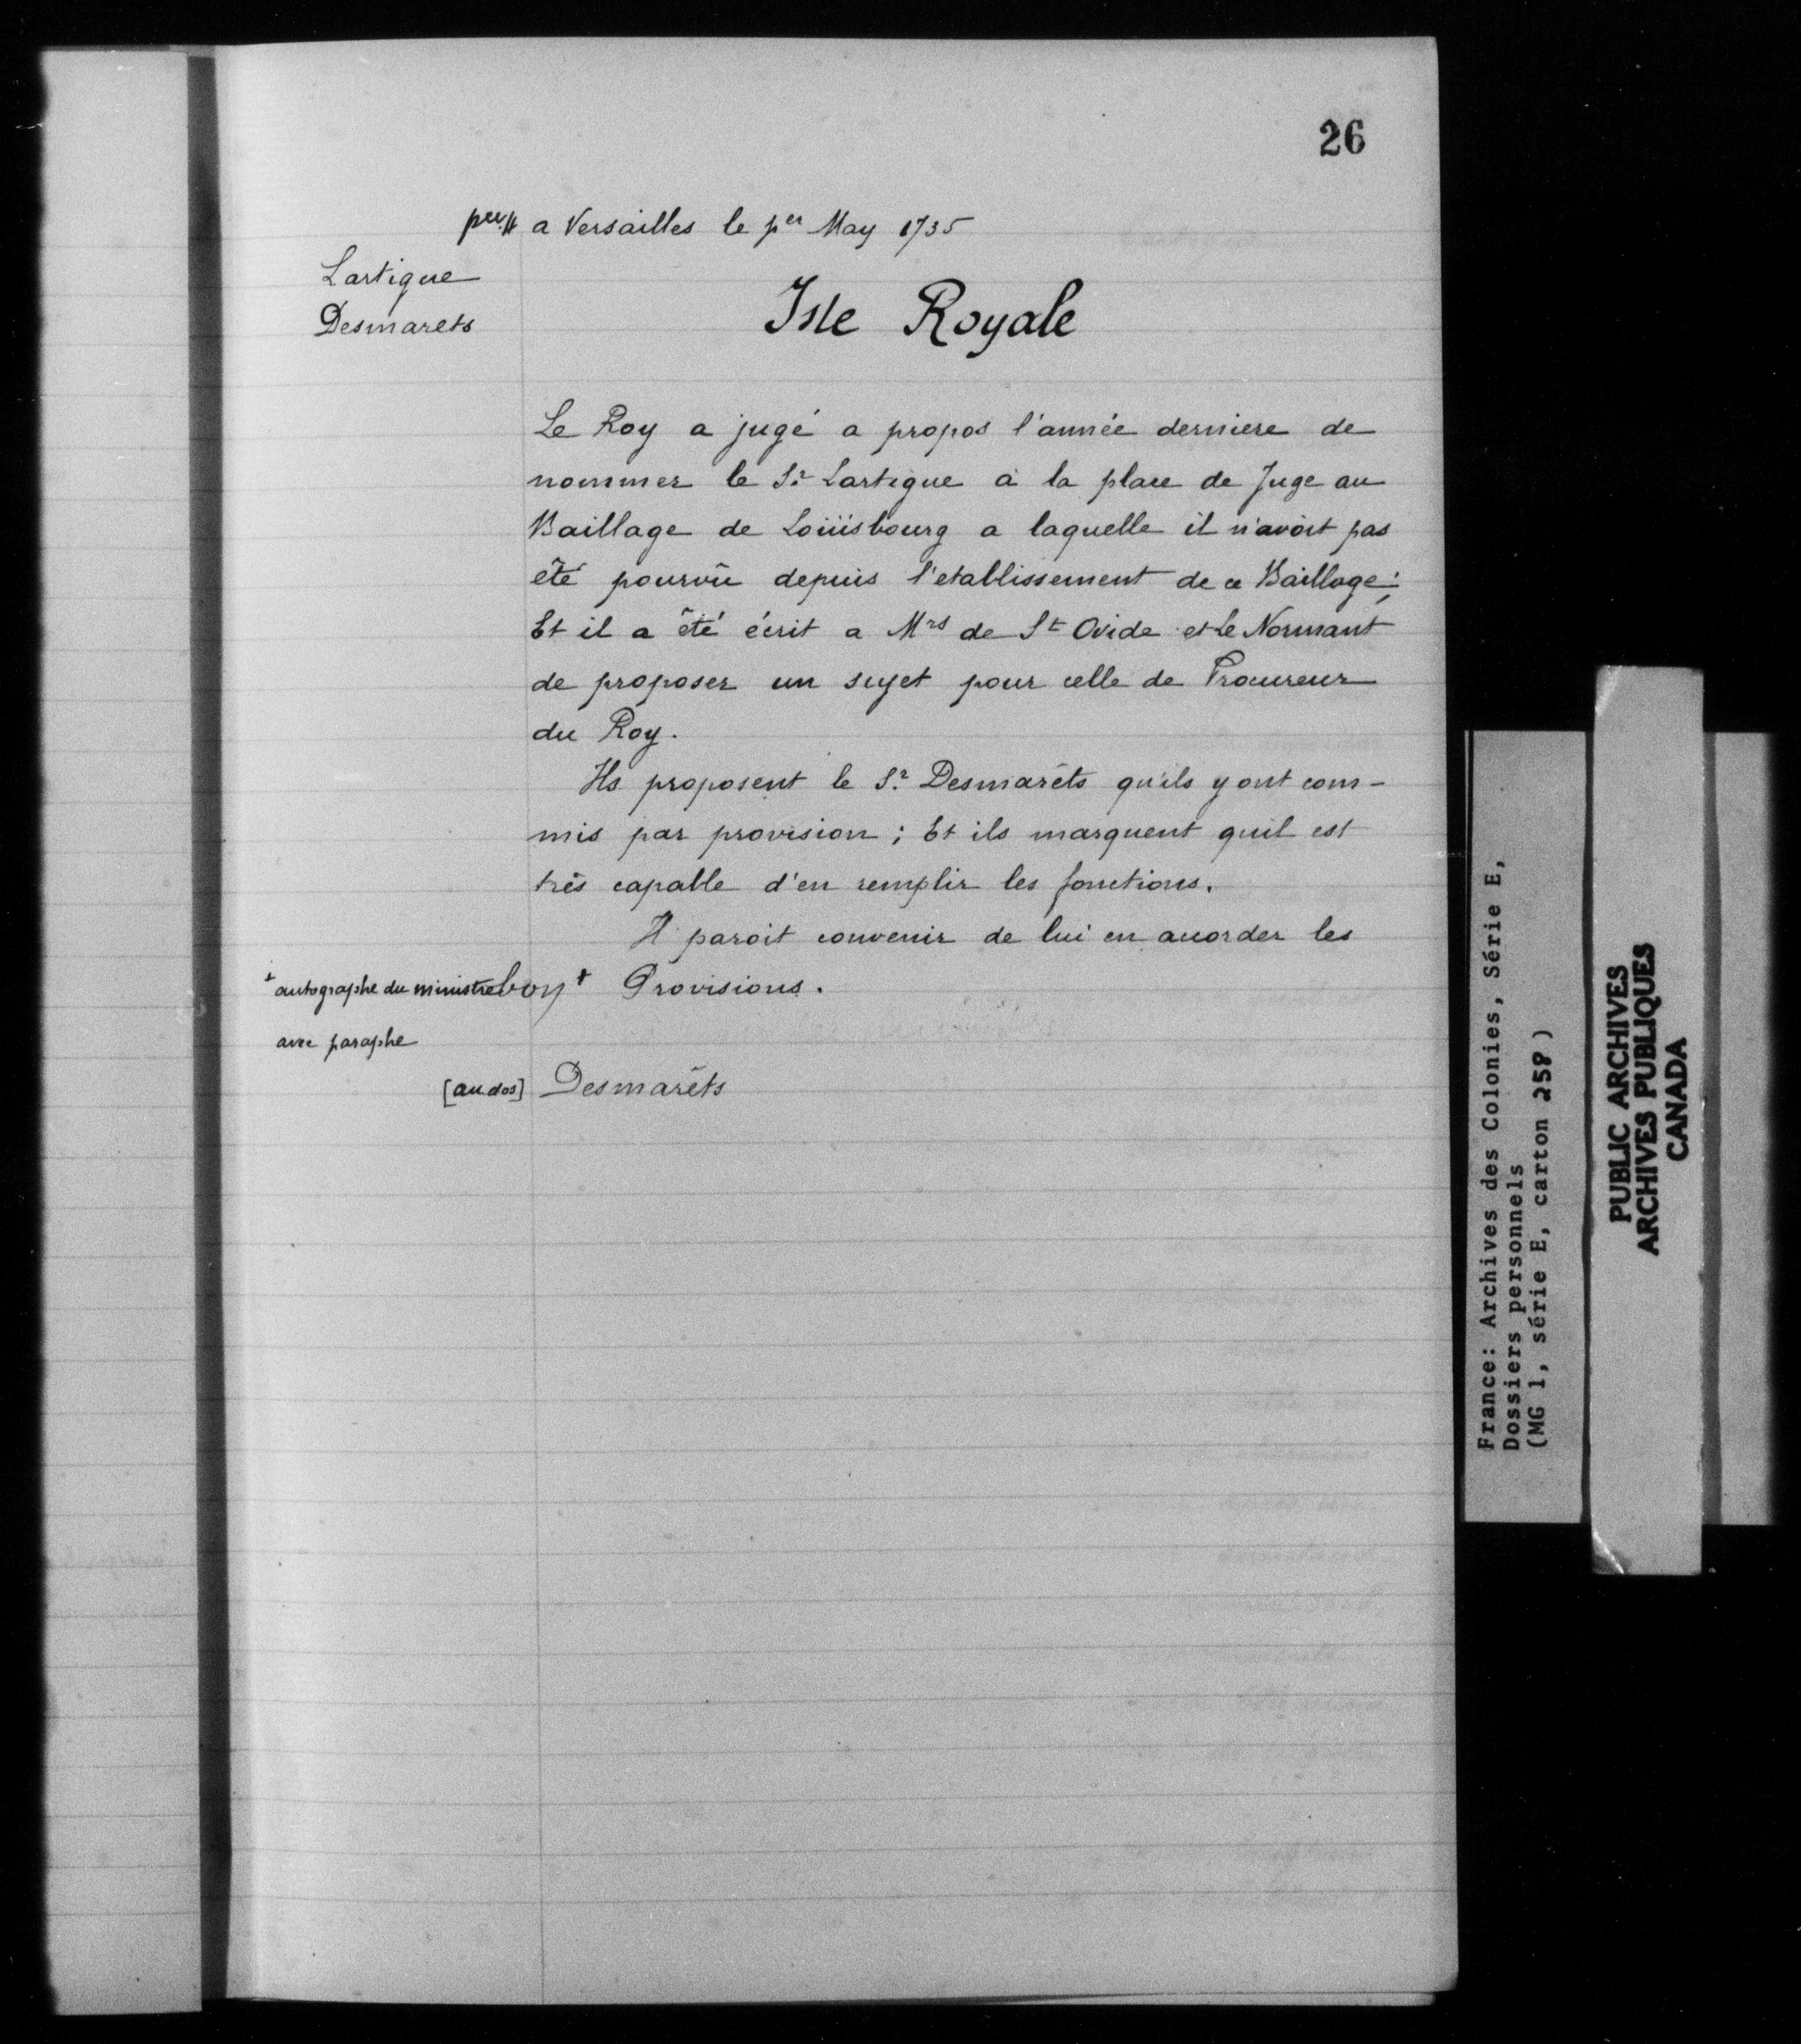 26
a Versailles le per May 1735
Lartigue
Desmarets
Isle Royale
Le Roy a jugé a propos l'année derniere de
nommer le Sr Lartigue à la place de Juge au
Baillage de Loüisbourg a laquelle il n'avoit pas
été pourvû depuis l'etablissement de ce Baillage;
Et il a été écrit a Mrs de St Ovide et Le Normant
de proposer un sujet pour celle de Procureur
du Roy.
Ils proposent le Sr Desmarêts qu'ils y ont com-
mis par provision; Et ils marquent quil est
très capable d'en remplir les fonctions.
Il paroit convenir de lui en accorder les
+ autographe du ministre bon + Provisions.
avec paraphe
[au dos] Desmarêts
France: Archives des Colonies, Série E,
Dossiers personnels
(MG 1, série E, carton 258)
PUBLIC ARCHIVES
ARCHIVES PUBLIQUES
CANADA